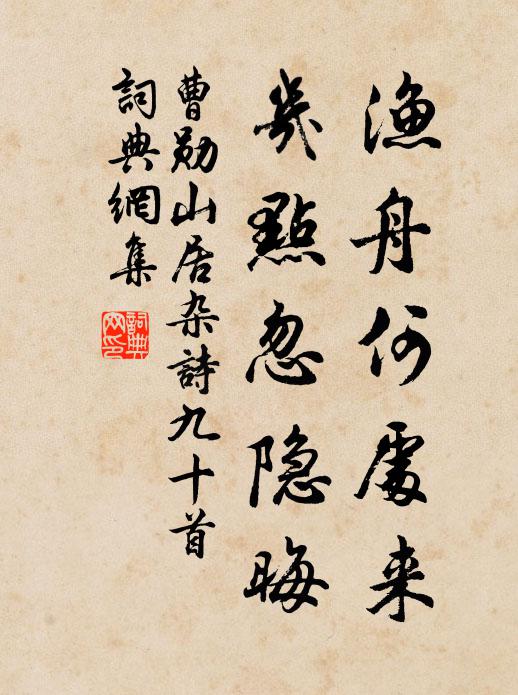 渔舟何處来
幾點忽隐晦
曹勋山居杂詩九十首
詞典網集
詞典网印